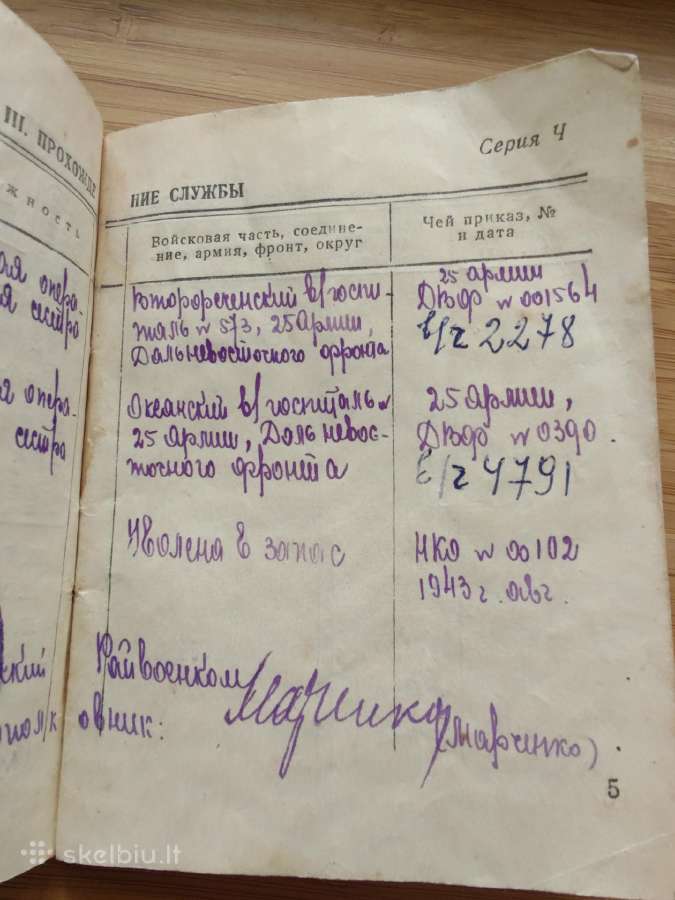 III. ПРОХОЖДЕ
НИЕ СЛУЖБЫ
Серия Ч
ЖНОСТЬ
Войсковая часть, соедине-
ние, армия, фронт, округ
Чей приказ, №
и дата
ая опера-
я сестра
я опера-
сестра
в/госпи-
таль № 573, 25 Армии,
Дальневосточного фронта
25 армии
ДВФ № 001564
в/ч 2278
Океанский в/госпиталь №
25 Армии, Дальневос-
точного фронта
25 Армии,
ДВФ № 0390.
в/ч 4791
Уволена в запас
НКО № 00102
1943 г. авг.
ский Райвоенком
полк овник:
(Марченко)
5
skelbiu.lt